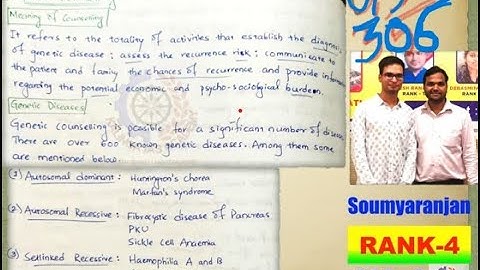 Meaning of Counseling
It refers to the totality of activities that establish the diagnos
of genetic disease; assess the recurrence risk; communicate to
the patient and family the chances of recurrence and provide inform
regarding the potential economic and psycho-sociolgial burden.
Genetic Diseases
Genetic counselling is possible for a significant number of diseas
There are over 600 known genetic diseases. Among them some
are mentioned below.
(1) Autosomal dominant: Hunington's chorea
Marfan's syndrome
(2) Autosomal Recessive: Fibrocystic disease of Pancreas
PKU
Sickle cell Anaemia
(3) Sexlinked Recessive: Haemophilia A and B
306
RANK
RANK
Soumyaranjan
RANK-4